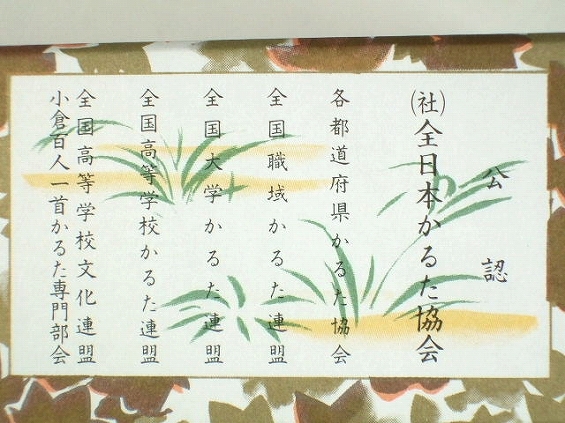 公認
(社)全日本かるた協会
各都道府県かるた協会
全国職域かるた連盟
全国大学かるた連盟
全国高等学校かるた連盟
全国高等学校文化連盟
小倉百人一首かるた専門部会